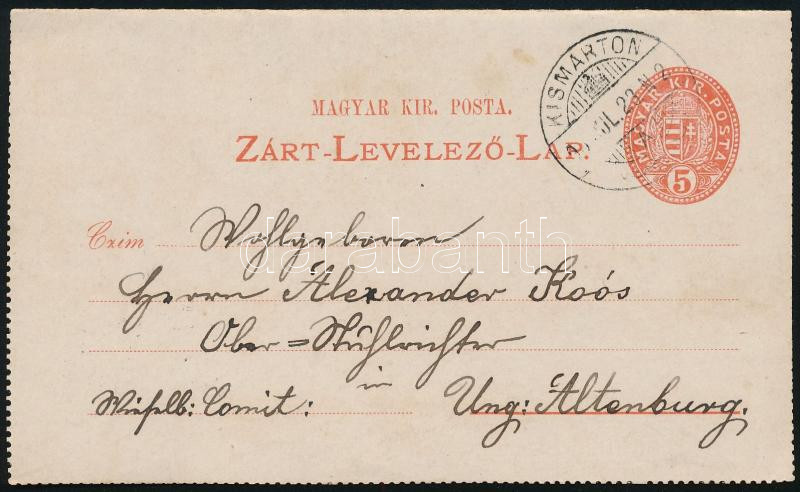 KISMARTON
JUL. 23. N 2
MAGYAR KIR. POSTA
5
MAGYAR KIR. POSTA.
ZÁRT-LEVELEZŐ-LAP.
Czim Wohlgeboren
Herrn Alexander Koós
Ober=Stuhlrichter
in
Wieselb: Comit: Ung: Altenburg.
darabanth